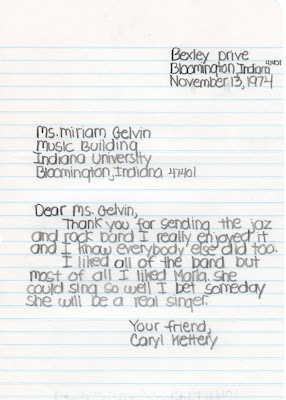 Bexley Drive
Bloomington, Indiana 47401
November 13, 1974
Ms. Miriam Gelvin
Music Building
Indiana University
Bloomington, Indiana 47401
Dear Ms. Gelvin,
Thank you for sending the jaz
and rock band I really enjoyed it
and I know everybody else did too.
I liked all of the band but
most of all I liked Marla. she
could sing so well I bet someday
she will be a real singer.
Your friend,
Caryl Kettery